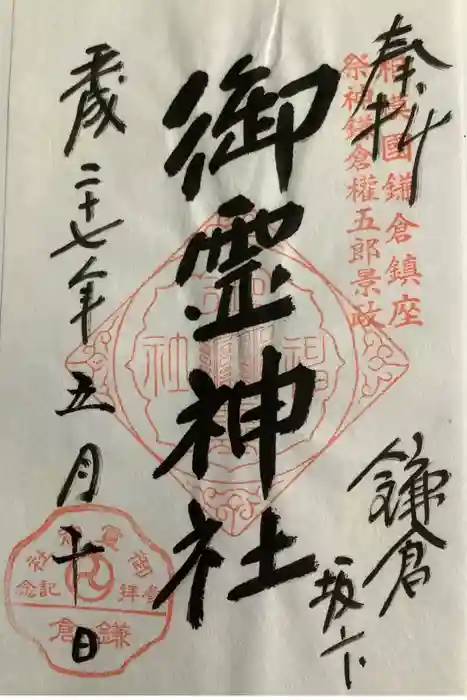 奉拝
相模國鎌倉鎮座
祭神鎌倉權五郎景政
鎌倉
坂ノ下
御霊神社
平成二十七年五月十日
参拝
記念
鎌倉